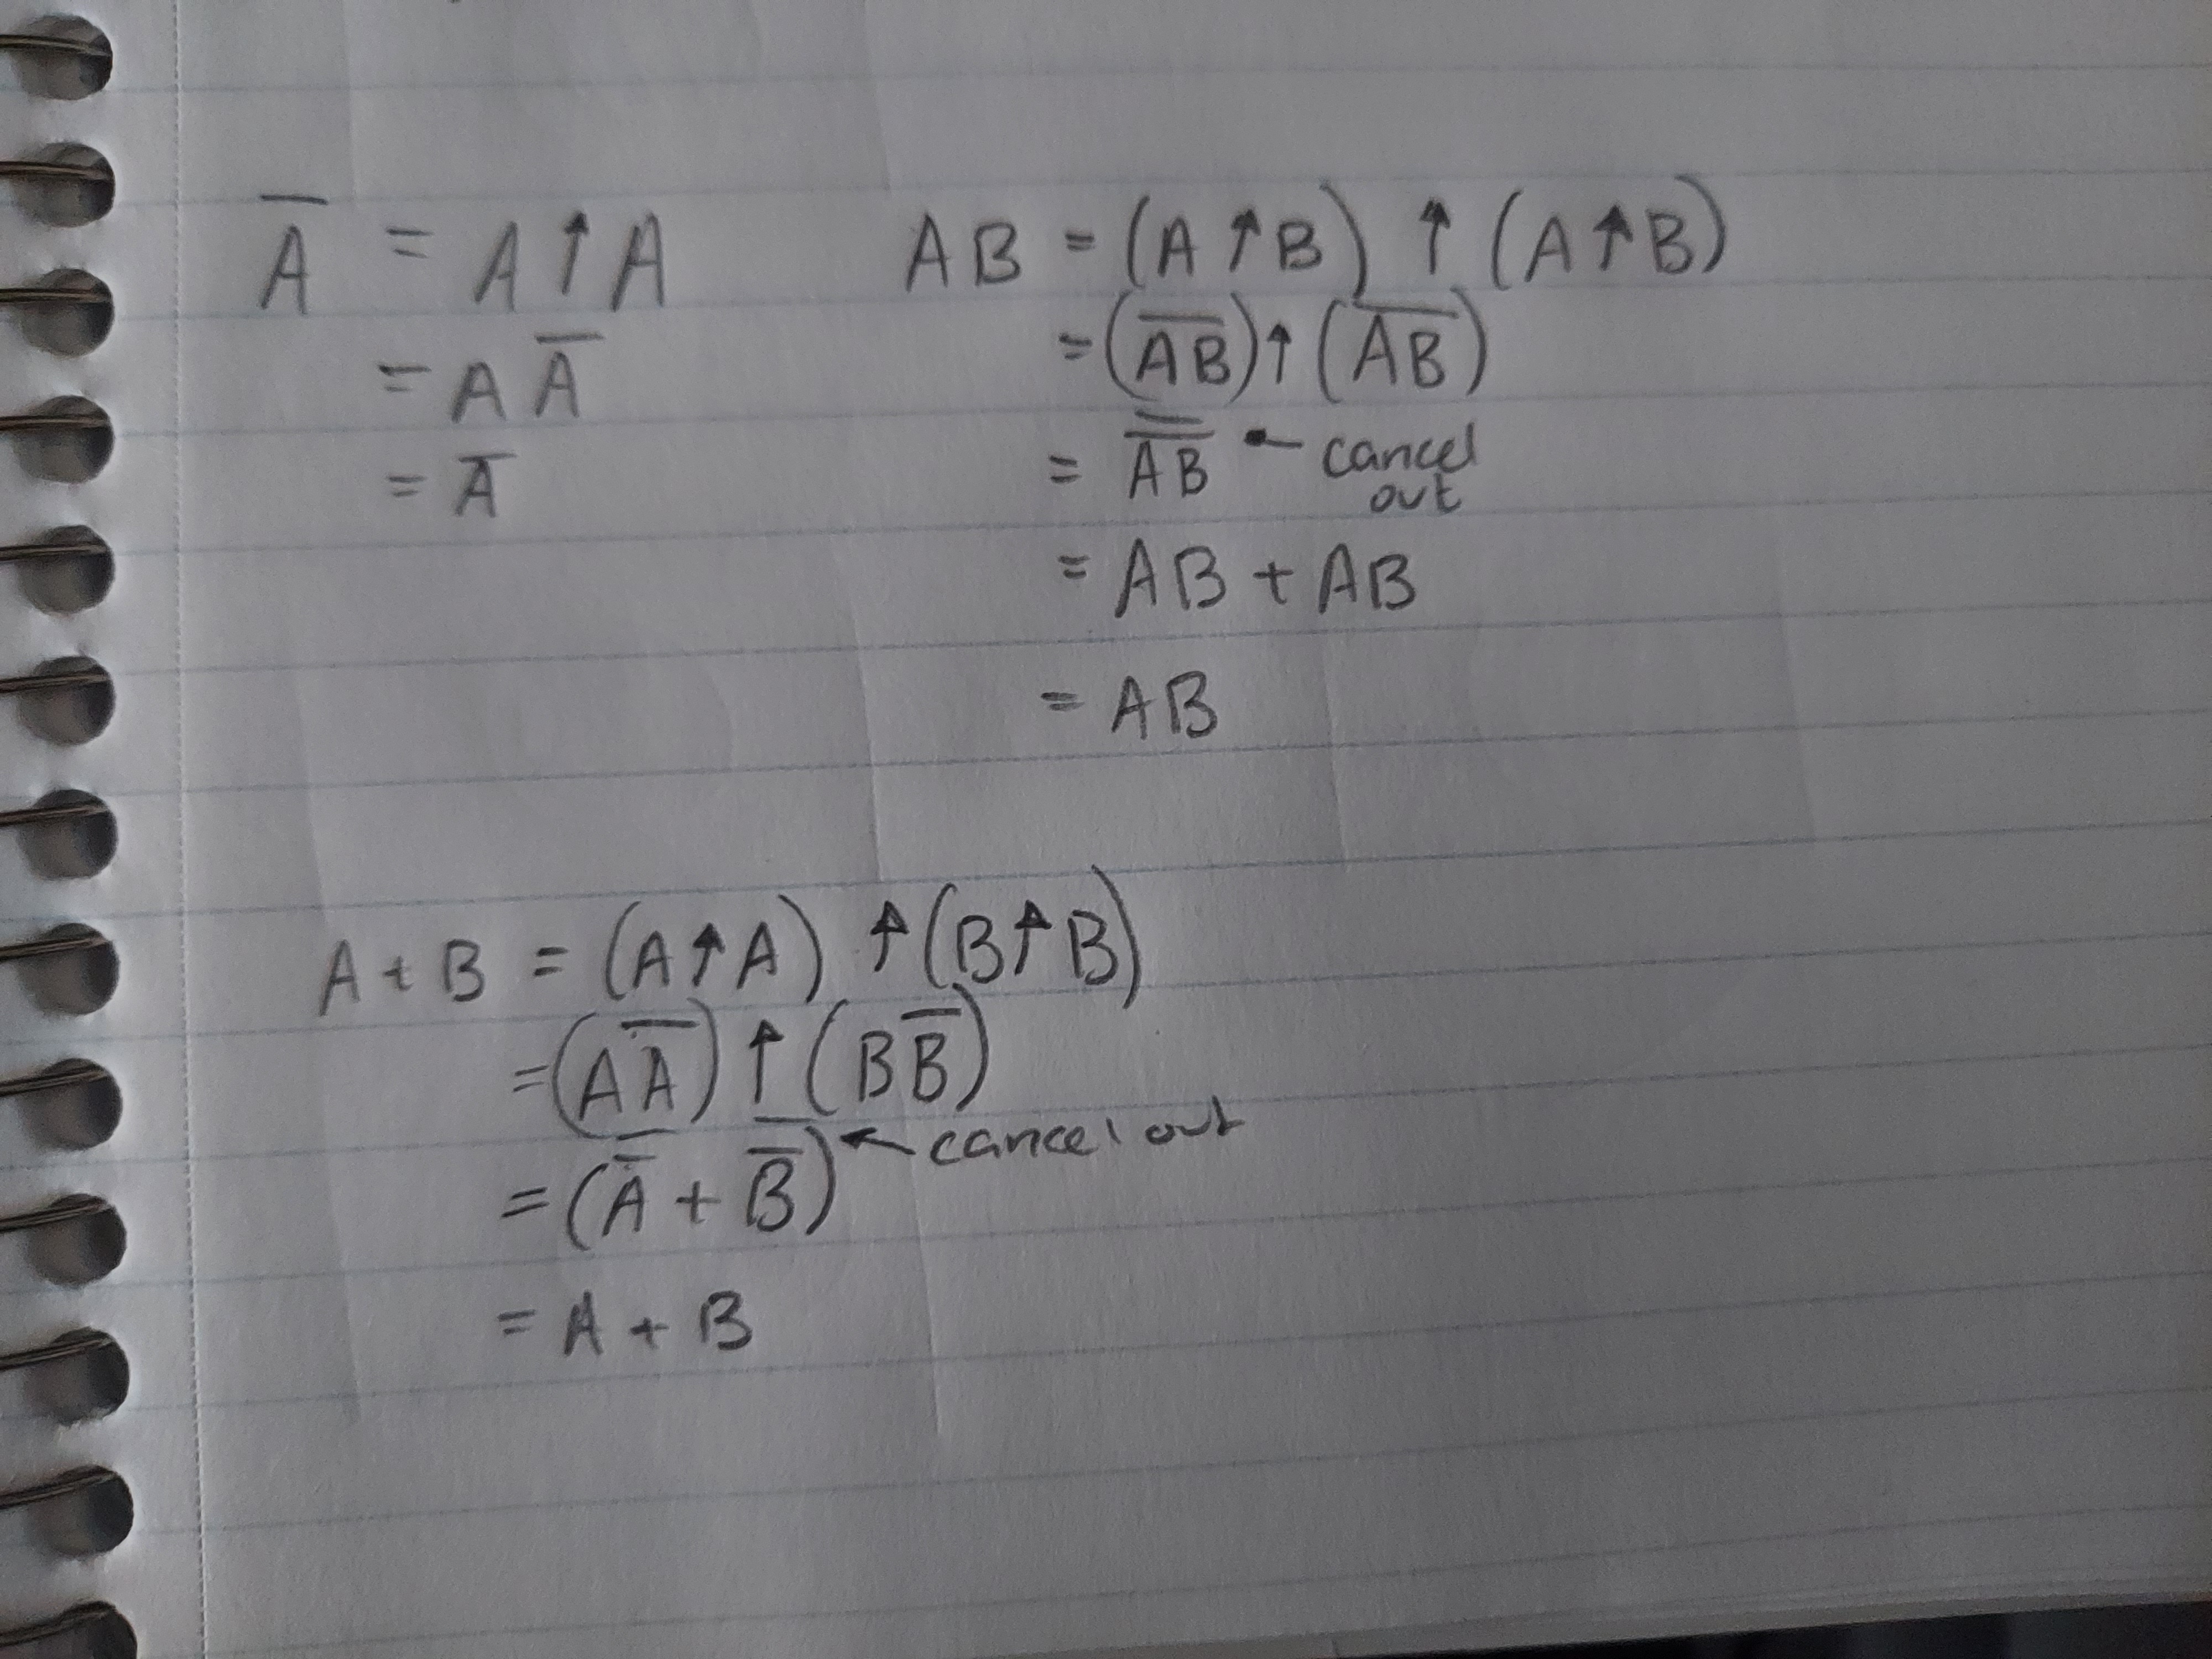 A̅ = A ↑ A
= A A̅
= A̅
AB = (A ↑ B) ↑ (A ↑ B)
= (A̅B̅) ↑ (A̅B̅)
= A̿B̿ ← cancel
out
= AB + AB
= AB
A + B = (A ↑ A) ↑ (B ↑ B)
= (A A̅) ↑ (B B̅)
= (A̿ + B̿) ← cancel out
= A + B